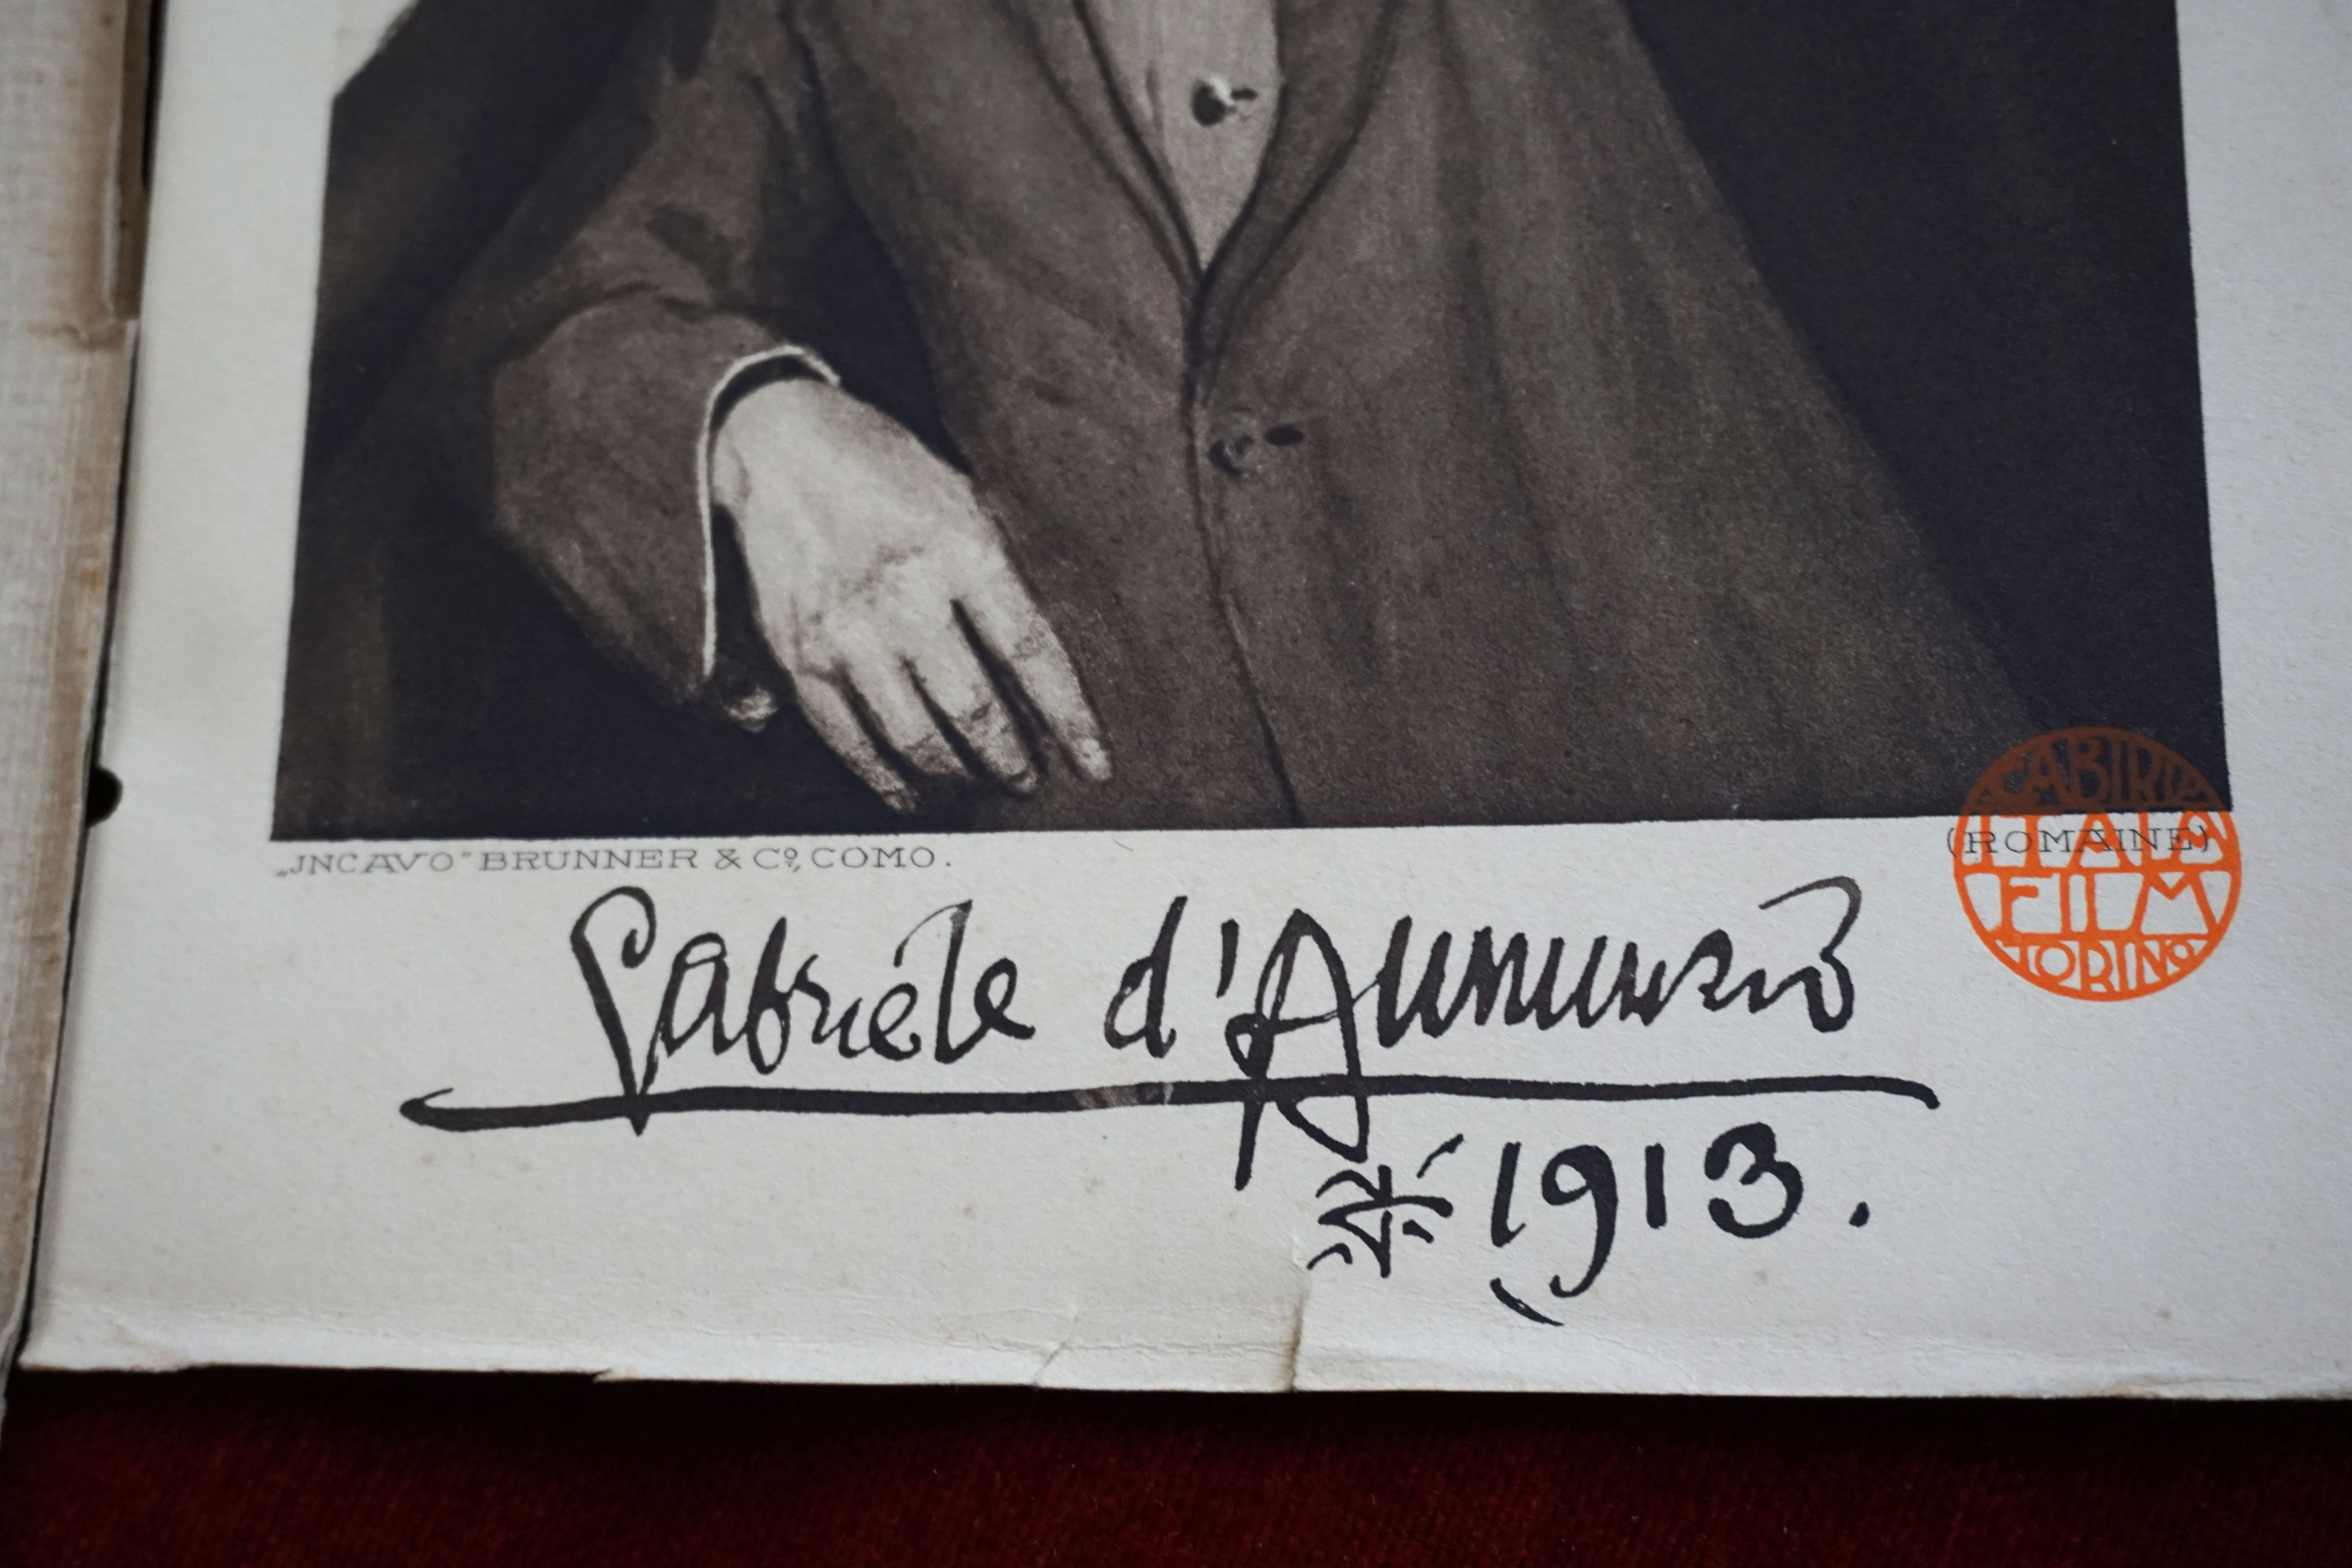 „JNCAVO" BRUNNER & Cº, COMO.
(ROMAINE)
CABIRIA
ITALA
FILM
TORINO
Gabriele d'Annunzio
1913.